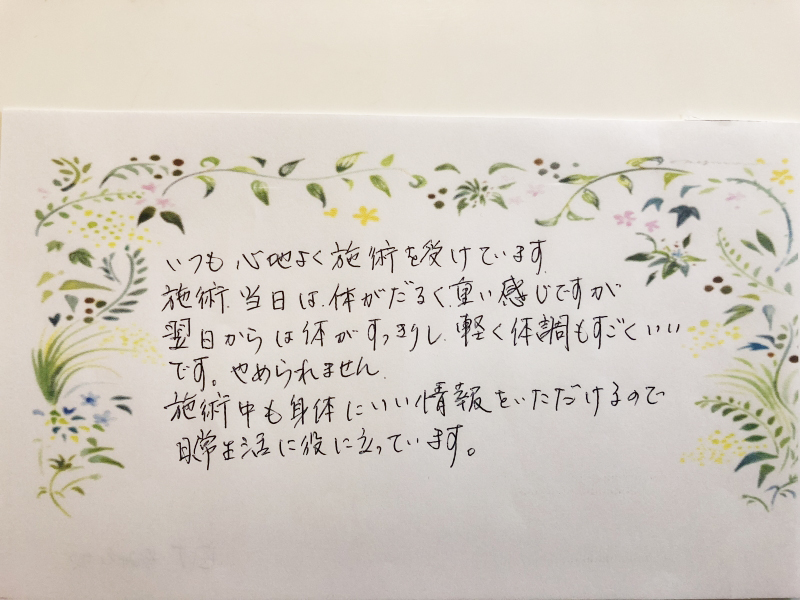 いつも心地よく施術を受けています
施術当日は体がだるく重い感じですが
翌日からは体がすっきりし軽く体調もすごくいい
です。やめられません
施術中も身体にいい情報をいただけるので
日常生活に役に立っています。